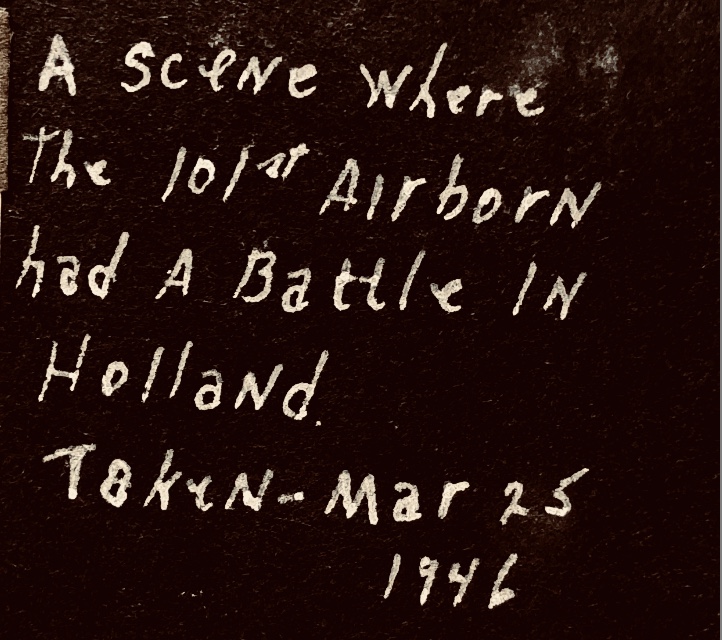 A Scene where
The 101st Airborn
had A Battle IN
Holland.
Taken- Mar 25
1946